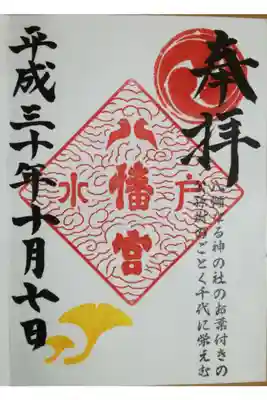 奉拝
八幡なる神の社のお葉付きの
公孫樹のごとく千代に栄えむ
八幡宮
水戸
平成三十年十月七日